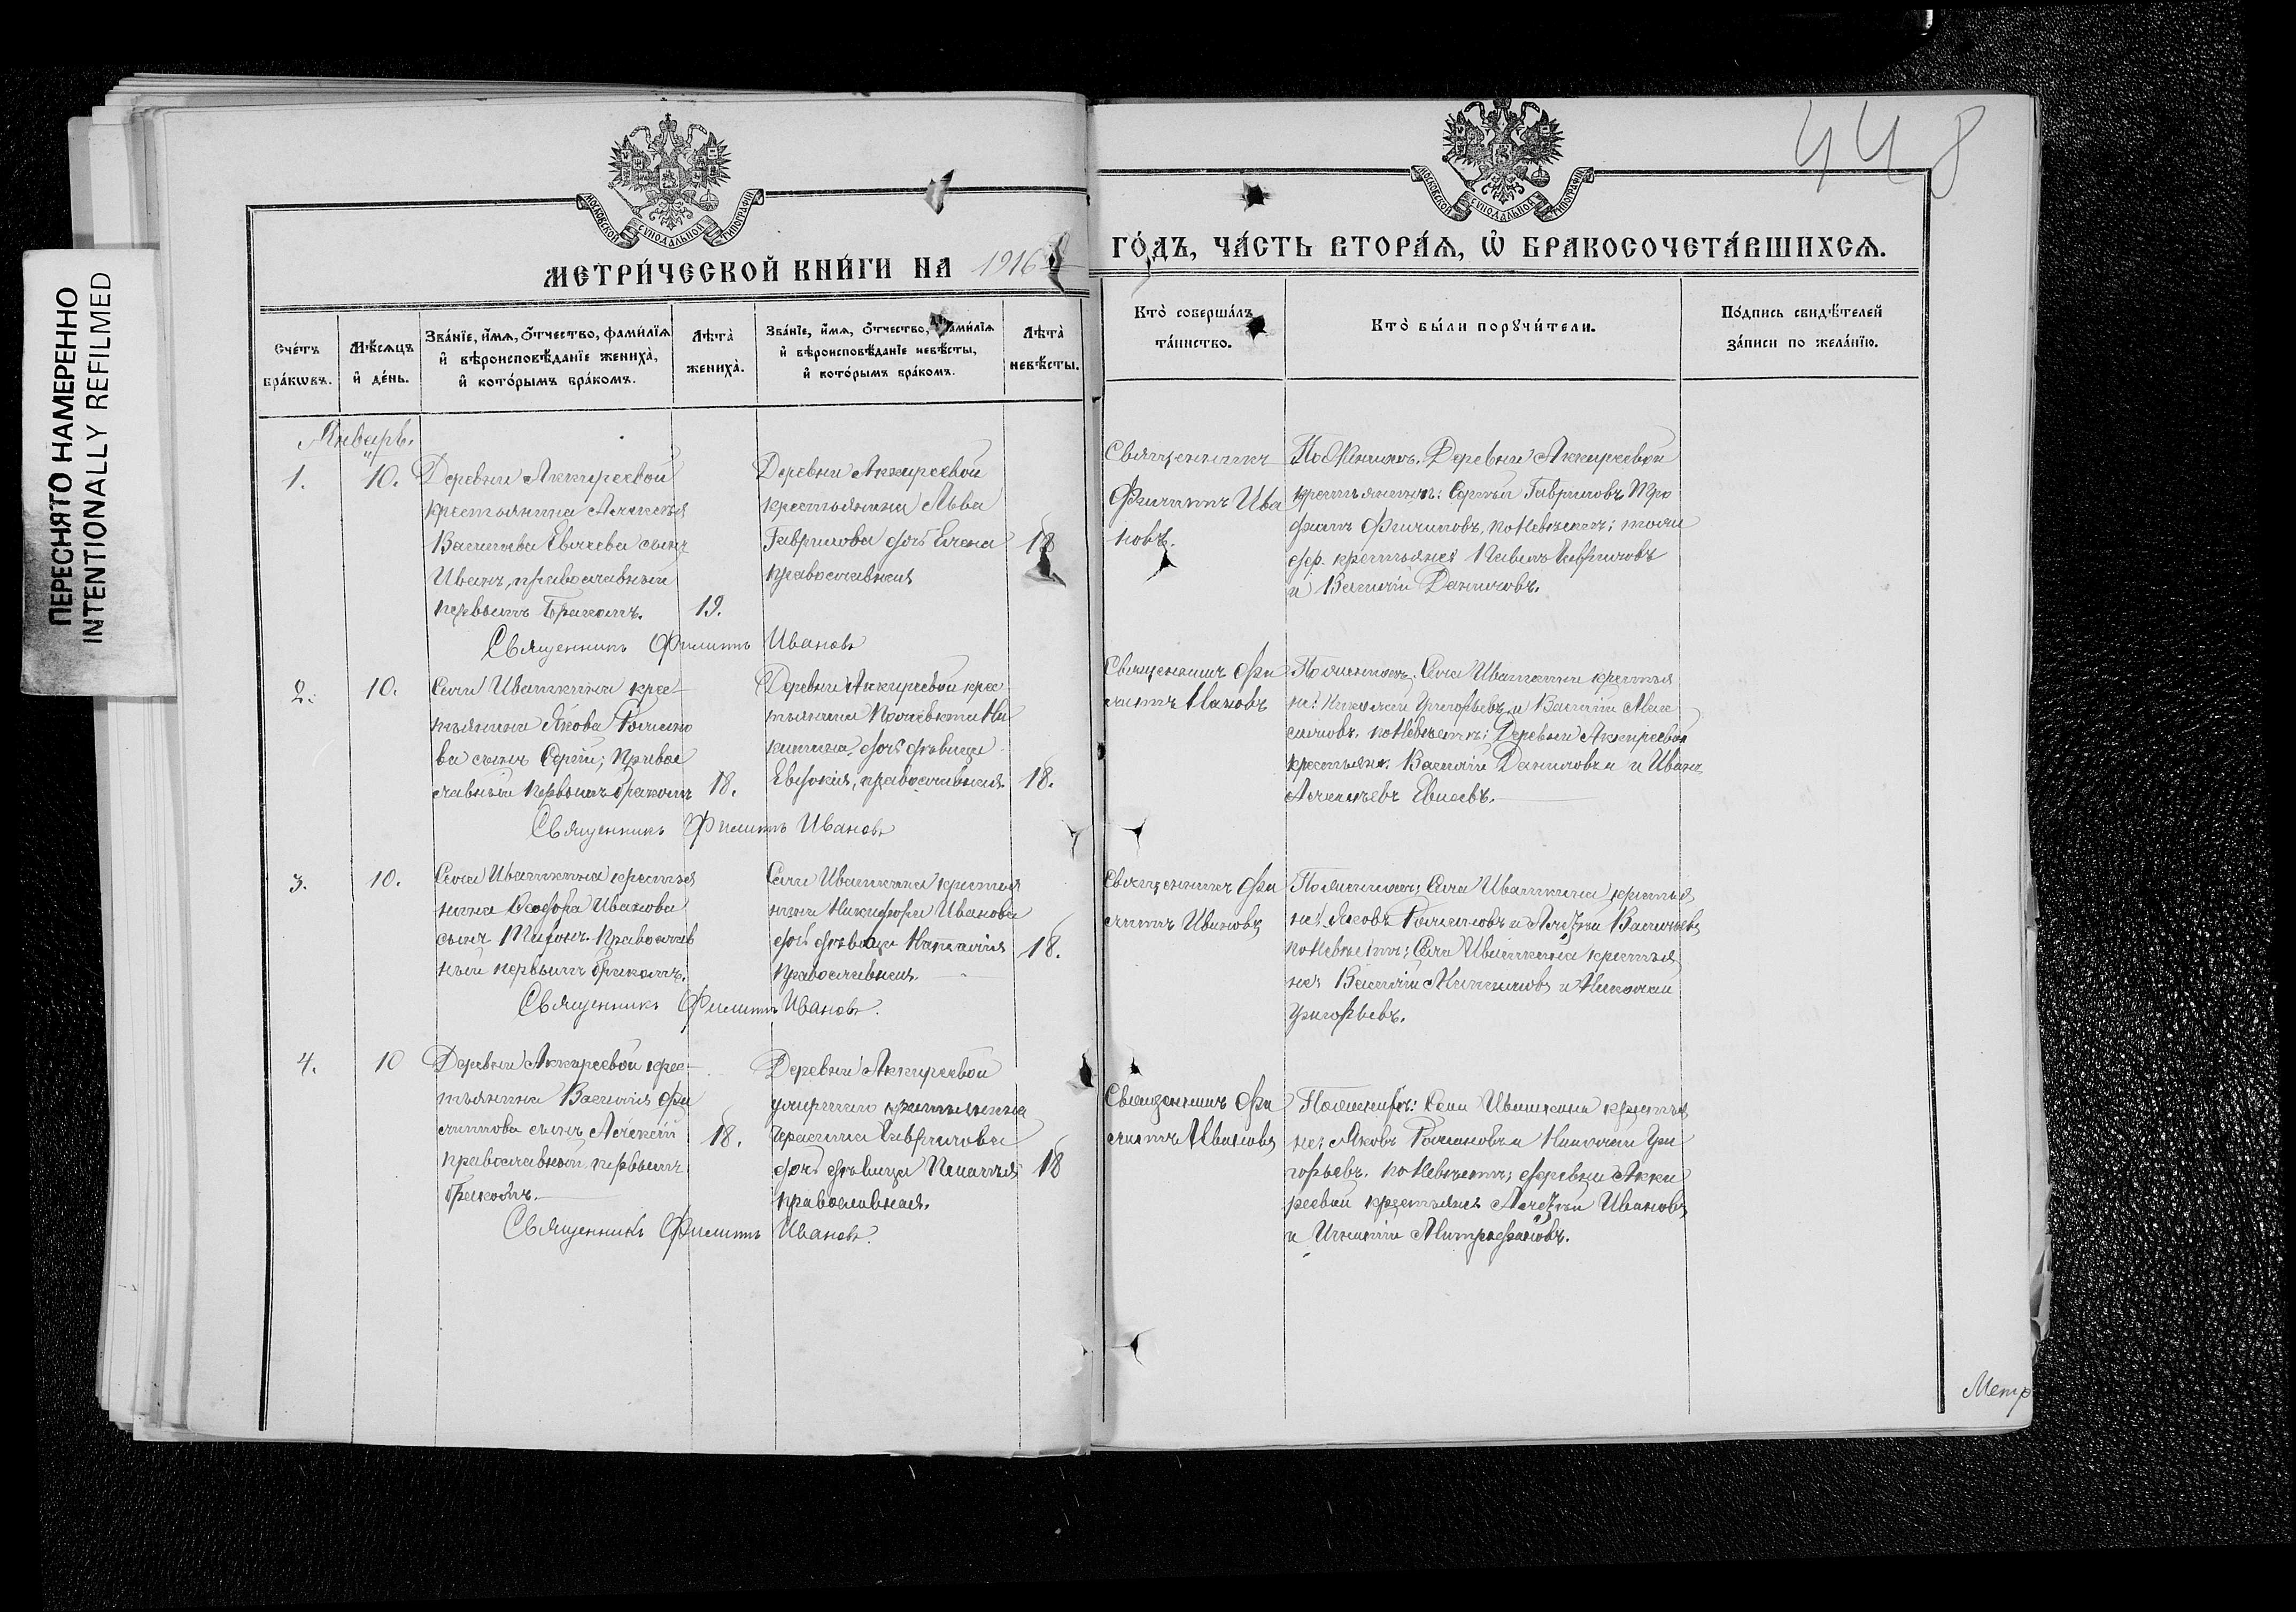 ПЕРЕСНЯТО НАМЕРЕННО
INTENTIONALLY REFILMED
448
МОСКОВСКОЙ СѴНОДАЛЬНОЙ ТИПОГРАФІИ
МОСКОВСКОЙ СѴНОДАЛЬНОЙ ТИПОГРАФІИ
МЕТРИ́ЧЕСКОЙ КНИ́ГИ НА 1916
ГО́ДЪ, ЧА́СТЬ ВТОРА́Ѧ, Ѽ БРАКОСОЧЕТА́ВШИХСѦ.
Сче́тъ бра́кѡвъ.
Мѣ́сѧцъ и҆ де́нь.
Зва́нїе, и҆́мѧ, ѻ҆́тчество, фами́лїѧ и҆ вѣроисповѣ́данїе жениха̀, и҆ кото́рымъ бра́комъ.
Лѣта̀ жениха̀.
Зва́нїе, и҆́мѧ, ѻ҆́тчество, фами́лїѧ и҆ вѣроисповѣ́данїе невѣ́сты, и҆ кото́рымъ бра́комъ.
Лѣта̀ невѣ́сты.
Кто̀ соверша́лъ та́инство.
Кто̀ бы́ли порꙋчи́тели.
По́дпись свидѣ́телей за́писи по жела́нїю.
Январь.
1.
10.
Деревни Аккиреевой
крестьянина Алексѣя
Васильева Евсеева сынъ
Иванъ, православный
первымъ бракомъ.
19.
Деревни Аккиреевой
крестьянина Льва
Гаврилова дочь Елена
православная
18
Священникъ
Филиппъ Ива
новъ.
По женихѣ: Деревни Аккиреевой
крестьяне: Сергѣй Гавриловъ Тро
фимъ Филиповъ, по невѣстѣ: тойже
дер. крестьяне Павелъ Гавриловъ
и Василій Даниловъ.
Священникъ Филиппъ Ивановъ
2.
10.
Села Ивашкина крес
тьянина Якова Романо
ва сынъ Сергій, Право
славный первымъ бракомъ
18.
Деревни Аккиреевой крес
тьянина
Ни
китина дочь дѣвица
Евдокія, православная.
18.
Священникъ Фи
липпъ Ивановъ
По женихѣ: Села Ивашкина крестья
не: Николай Григорьевъ и Василій
по невѣстѣ: Деревни Аккиреевой
крестьяне Василій Даниловъ и Иванъ
Алексѣевъ Евсеевъ.
Священникъ Филиппъ Ивановъ
3.
10.
Села Ивашкина крестья
нина Ѳеодора Иванова
сынъ Тихонъ. Православ
ный первымъ бракомъ.
Села Ивашкина крестья
нина Никифора Иванова
дочь дѣвица Наталія
православная.
18.
Священникъ Фи
липпъ Ивановъ
По женихѣ: Села Ивашкина крестья
не: Яковъ Романовъ и Андрей Васильевъ
по невѣстѣ: Села Ивашкина крестья
не Василій
и Николай
Григорьевъ.
Священникъ Филиппъ Ивановъ.
4.
10
Деревни Аккиреевой крес
тьянина Василія Фи
липпова сынъ Алексѣй
православный первымъ
бракомъ.
18.
Деревни Аккиреевой
умершаго крестьянина
Герасима Гаврилова
дочь дѣвица Пелагія
православная.
18
Священникъ Фи
липпъ Ивановъ
По женихѣ: Села Ивашкина крестья
не: Яковъ Романовъ и Николай Гри
горьевъ. по невѣстѣ: деревни Акки
реевой крестьяне Андрей Ивановъ
и Игнатій Митрофановъ.
Священникъ Филиппъ Ивановъ.
Метр